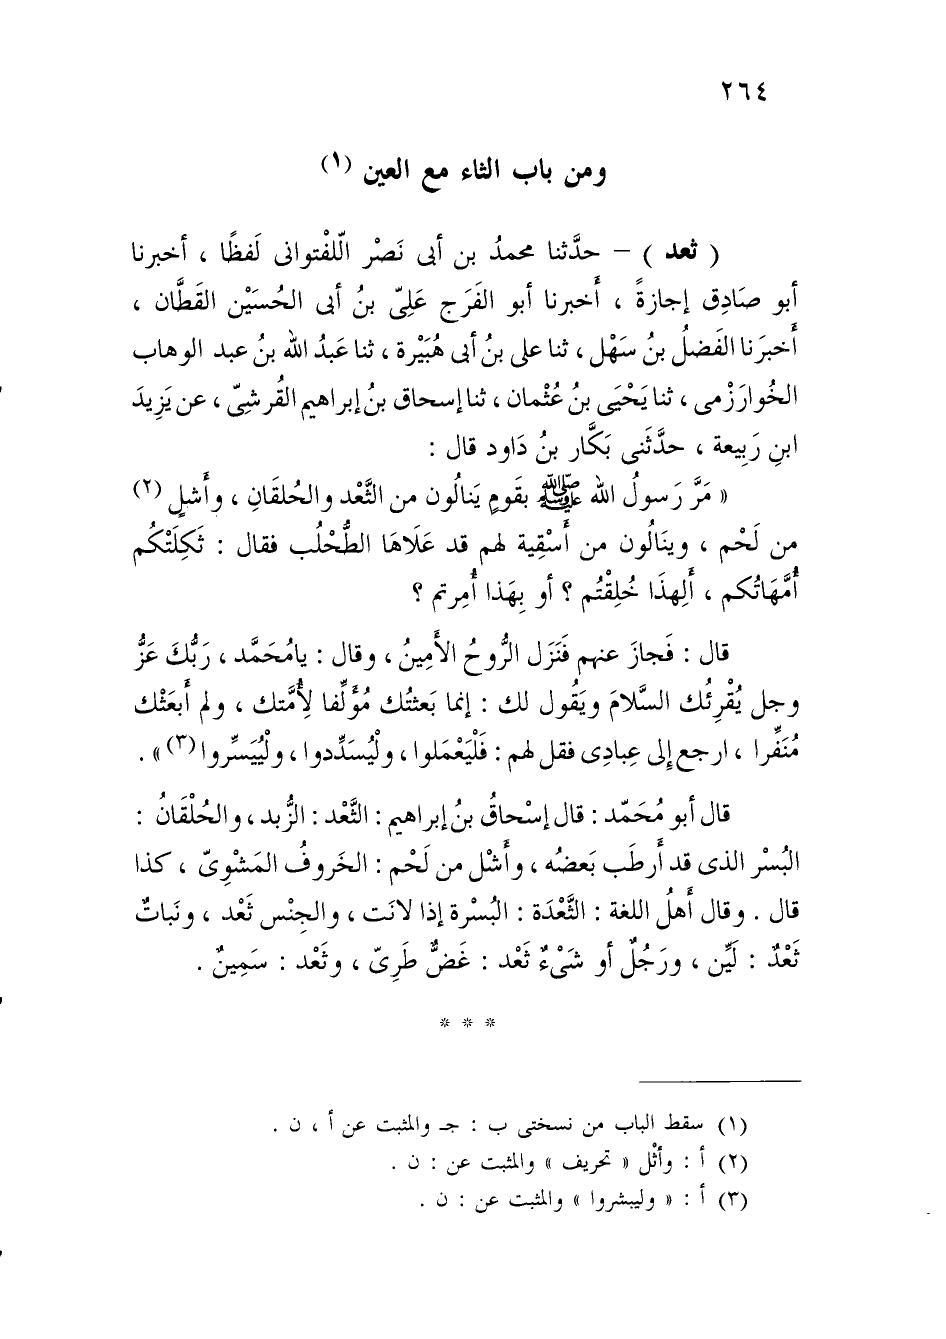 ٢٦٤
ومن باب الثاء مع العين (١)
( ثعد ) – حدَّثنا محمدُ بن أبى نَصْر الّلفْتوانى لَفظًا ، أخبرنا
أبو صَادِق إجازةً ، أَخبرنا أبو الفَرَج عَلِىّ بنُ أبى الحُسَيْن القَطَّان ،
أَخبرَنا الفَضلُ بنُ سَهْل ، ثنا على بنُ أبى هُبَيْرة ، ثنا عَبدُ الله بنُ عبد الوهاب
الخُوارَزْمى ، ثنا يَحْيَى بنُ عُثْمان ، ثنا إسحاق بنُ إبراهيم القُرشِىّ ، عن يَزِيدَ
ابنِ رَبِيعة ، حدَّثَنى بَكَّار بنُ دَاود قال :
« مَرَّ رَسولُ الله ﷺ بقَومٍ يَنالُون من الثَّعْد والحُلقَانِ ، وأَشلٍ (٢)
من لَحْم ، وينَالُون من أَسْقِية لهم قد عَلَاهَا الطُّحْلُب فقال : ثَكِلَتْكم
أُمَّهَاتُكم ، أَلِهذَا خُلِقْتُم ؟ أو بِهَذا أُمِرتم ؟
قال : فَجازَ عنهم فَنَزَل الرُّوحُ الأَمِينُ ، وقال : يامُحَمَّد ، رَبُّكَ عَزُّ
وجل يُقْرِئُك السَّلامَ ويَقُول لك : إنما بَعثتُك مُؤَلِّفا لِأُمَّتك ، ولم أَبعَثْك
مُنَفِّرا ، ارجع إِلى عِبادِى فقل لهم : فَلْيَعْمَلوا ، ولْيُسَدِّدوا ، ولْيُيَسِّروا (٣) » .
قال أبو مُحَمّد : قال إسْحاقُ بنُ إبراهيم : الثَّعْد : الزُّبد ، والحُلْقَانُ :
البُسْر الذى قد أَرطَب بَعضُه ، وأَشْل من لَحْم : الخَروفُ المَشْوِىّ ، كذا
قال . وقال أَهلُ اللغة : الثَّعْدَة : البُسْرة إذا لانَت ، والجِنْس ثَعْد ، ونَباتٌ
ثَعْدٌ : لَيِّن ، ورَجُلٌ أو شَىْءٌ ثَعْد : غَضٌّ طَرِىّ ، وثَعْد : سَمِينٌ .
* * *
(١) سقط الباب من نسختى ب : جـ والمثبت عن أ ، ن .
(٢) أ : وأثْل « تحريف » والمثبت عن : ن .
(٣) أ : « وليبشروا » والمثبت عن : ن .